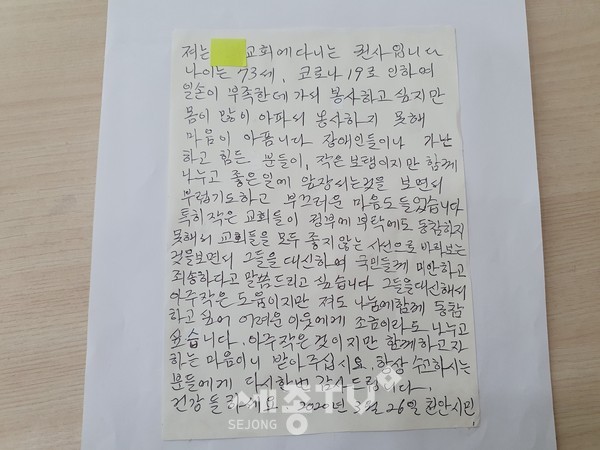 저는 교회에 다니는 권사입니다
나이는 73세, 코로나19로 인하여
일손이 부족한데 가서 봉사하고 싶지만
몸이 많이 아파서 봉사하지 못해
마음이 아픕니다 장애인들이나 가난
하고 힘든 분들이, 작은 보탬이지만 함께
나누고 좋은일에 앞장서는것을 보면서
부럽기도하고 부끄러운 마음도 들었습니다
특히 작은 교회들이 정부에 부탁에도 동참하지
못해서 교회들을 모두 좋지 않는 시선으로 바라보는
것을보면서 그들을 대신하여 국민들께 미안하고
죄송하다고 말씀드리고 싶습니다 그들을대신해서
아주작은 도움이지만 저도 나눔에함께 동참
하고 싶어 어려운 이웃에게 조금이라도 나누고
싶습니다. 아주작은것이지만 함께하고자
하는 마음이니 받아주십시요. 항상 수고하시는
분들에게 다시한번 감사드립니다.
건강들하세요 2020년 월 26일 천안시민
세종TV
SEJONG